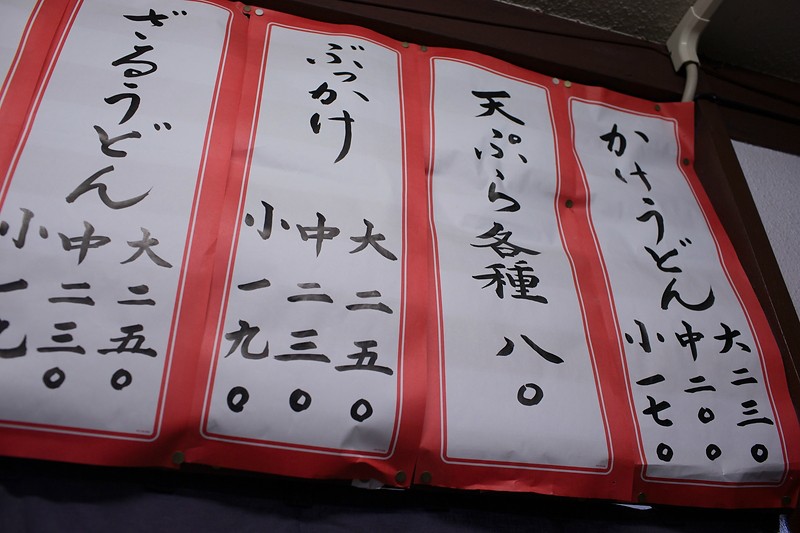 かけうどん
大二三〇
中二〇〇
小一七〇
天ぷら各種
八〇
ぶっかけ
大二五〇
中二三〇
小一九〇
ざるうどん
大二五〇
中二三〇
小一九